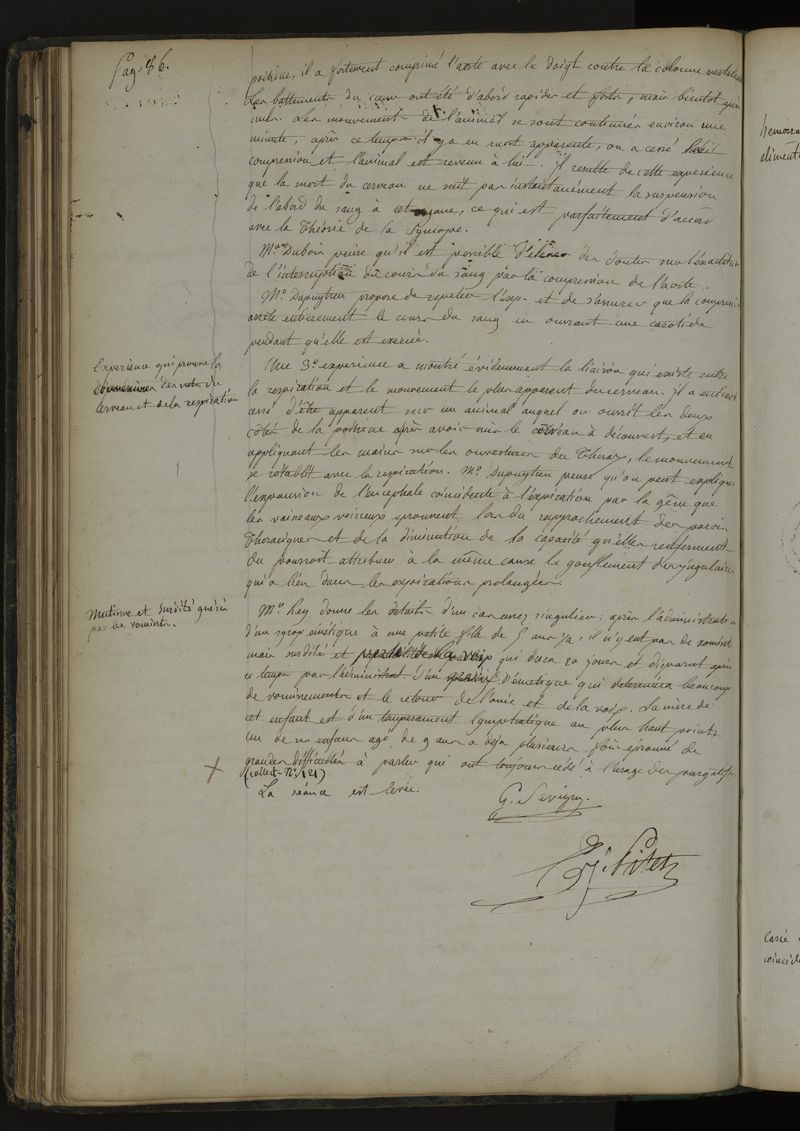 Pag. 86.
poitrine, il a fortement comprimé l'aorte avec le doigt contre la colonne vertébrale
Les battements du cœur ont été d'abord rapides et forts, mais bientôt après
nuls. Les mouvements de l'animal se sont continués environ une
minute, après ce temps il y a eu mort apparente, on a cessé
compression et l'animal est revenu à lui. Il resulte de cette experience
que la mort du cerveau ne suit pas instantanément la suspension
de l'abord du sang à cet organe, ce qui est parfaitement d'accord
avec la Théorie de la Syncope.
Mr. Dubois pense qu'il est possible d'élever des doutes sur l'exactitude
de l'interruption du cours du sang par la compression de l'aorte.
Mr. Dupuytren propose de repeter l'exp. et de s'assurer que la compression
arrête entièrement le cours du sang en ouvrant une carotide
pendant qu'elle est exercée.
Experience qui prouve la
connexion des mvts du
cerveau et de la respiration
Une 3e. experience a montré évidemment la liaison qui existe entre
la respiration et le mouvement le plus apparent du cerveau. Il a entièrt
cessé d'être apparent sur un animal auquel on ouvrit les deux
côtés de la poitrine après avoir mis le cerveau à découvert, et en
appliquant les mains sur les ouvertures du Thorax, le mouvement
se rétablit avec la respiration. Mr. Dupuytren pense qu'on peut expliquer
l'expansion de l'encephale coincidente à l'expiration par la gêne que
les vaisseaux veineux éprouvent lors du rapprochement des parois
Thoraciques et de la diminution de la capacité qu'elles renferment.
On pourroit attribuer à la même cause le gonflement des jugulaires
qui a lieu dans les expirations prolongées.
Mutisme et surdité guéris
par les vomits.
Mr. Rey donne les détails d'un cas assez singulier: après l'administrat.
d'un sirop émétique à une petite fille de 5 ans ½, il n'y eut pas de vomist
mais surdité et perte de la voix qui dura 20 jours et disparut après
ce temps par l'administrat. d'un d'émétique qui determina beaucoup
de vomissements et le retour de l'ouïe et de la voix. La mère de
cet enfant est d'un temperament lymphatique au plus haut point.
Un de ses enfans agé de 9 ans a déja plusieurs fois éprouvé de
grandes difficultés à parler qui ont toujours cédé à l'usage des purgatifs.
(collect. No. 121)
La séance est levée.
G. Sevigny.